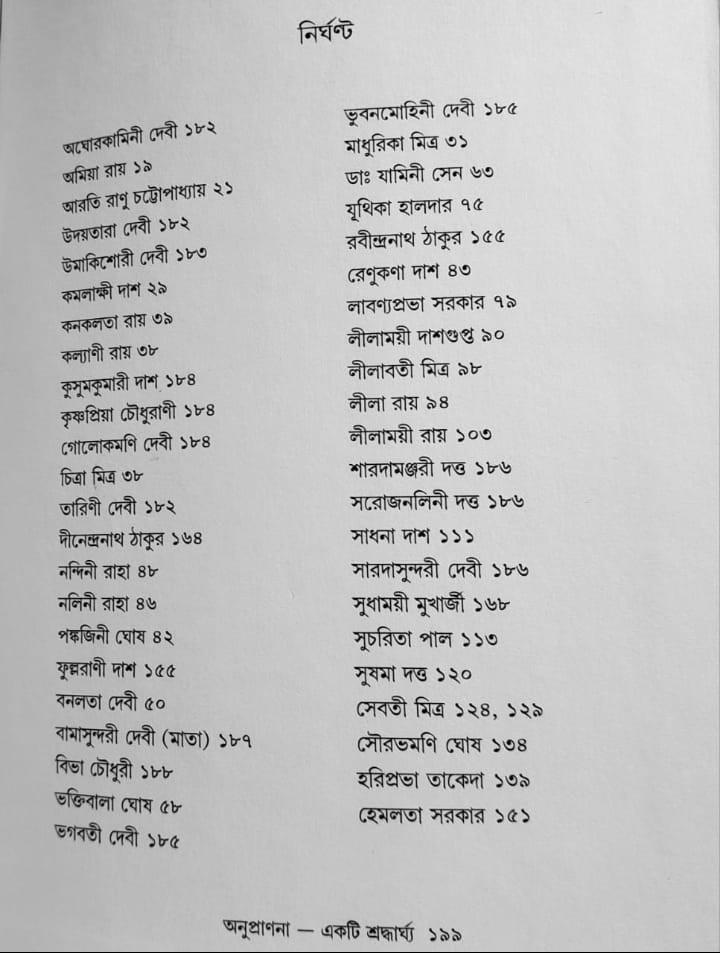 নির্ঘণ্ট
অঘোরকামিনী দেবী ১৮২
অমিয়া রায় ১৯
আরতি রাণু চট্টোপাধ্যায় ২১
উদয়তারা দেবী ১৮২
উমাকিশোরী দেবী ১৮৩
কমলাক্ষী দাশ ২৯
কনকলতা রায় ৩৯
কল্যাণী রায় ৩৮
কুসুমকুমারী দাশ ১৮৪
কৃষ্ণপ্রিয়া চৌধুরাণী ১৮৪
গোলোকমণি দেবী ১৮৪
চিত্রা মিত্র ৩৮
তারিণী দেবী ১৮২
দীনেন্দ্রনাথ ঠাকুর ১৬৪
নন্দিনী রাহা ৪৮
নলিনী রাহা ৪৬
পঙ্কজিনী ঘোষ ৪২
ফুল্লরাণী দাশ ১৫৫
বনলতা দেবী ৫০
বামাসুন্দরী দেবী (মাতা) ১৮৭
বিভা চৌধুরী ১৮৮
ভক্তিবালা ঘোষ ৫৮
ভগবতী দেবী ১৮৫
ভুবনমোহিনী দেবী ১৮৫
মাধুরিকা মিত্র ৩১
ডাঃ যামিনী সেন ৬৩
যূথিকা হালদার ৭৫
রবীন্দ্রনাথ ঠাকুর ১৫৫
রেণুকণা দাশ ৪৩
লাবণ্যপ্রভা সরকার ৭৯
লীলাময়ী দাশগুপ্ত ৯০
লীলাবতী মিত্র ৯৮
লীলা রায় ৯৪
লীলাময়ী রায় ১০৩
শারদামঞ্জরী দত্ত ১৮৬
সরোজনলিনী দত্ত ১৮৬
সাধনা দাশ ১১১
সারদাসুন্দরী দেবী ১৮৬
সুধাময়ী মুখার্জী ১৬৮
সুচরিতা পাল ১১৩
সুষমা দত্ত ১২০
সেবতী মিত্র ১২৪, ১২৯
সৌরভমণি ঘোষ ১৩৪
হরিপ্রভা তাকেদা ১৩৯
হেমলতা সরকার ১৫১
অনুপ্রাণনা — একটি শ্রদ্ধার্ঘ্য ১৯৯